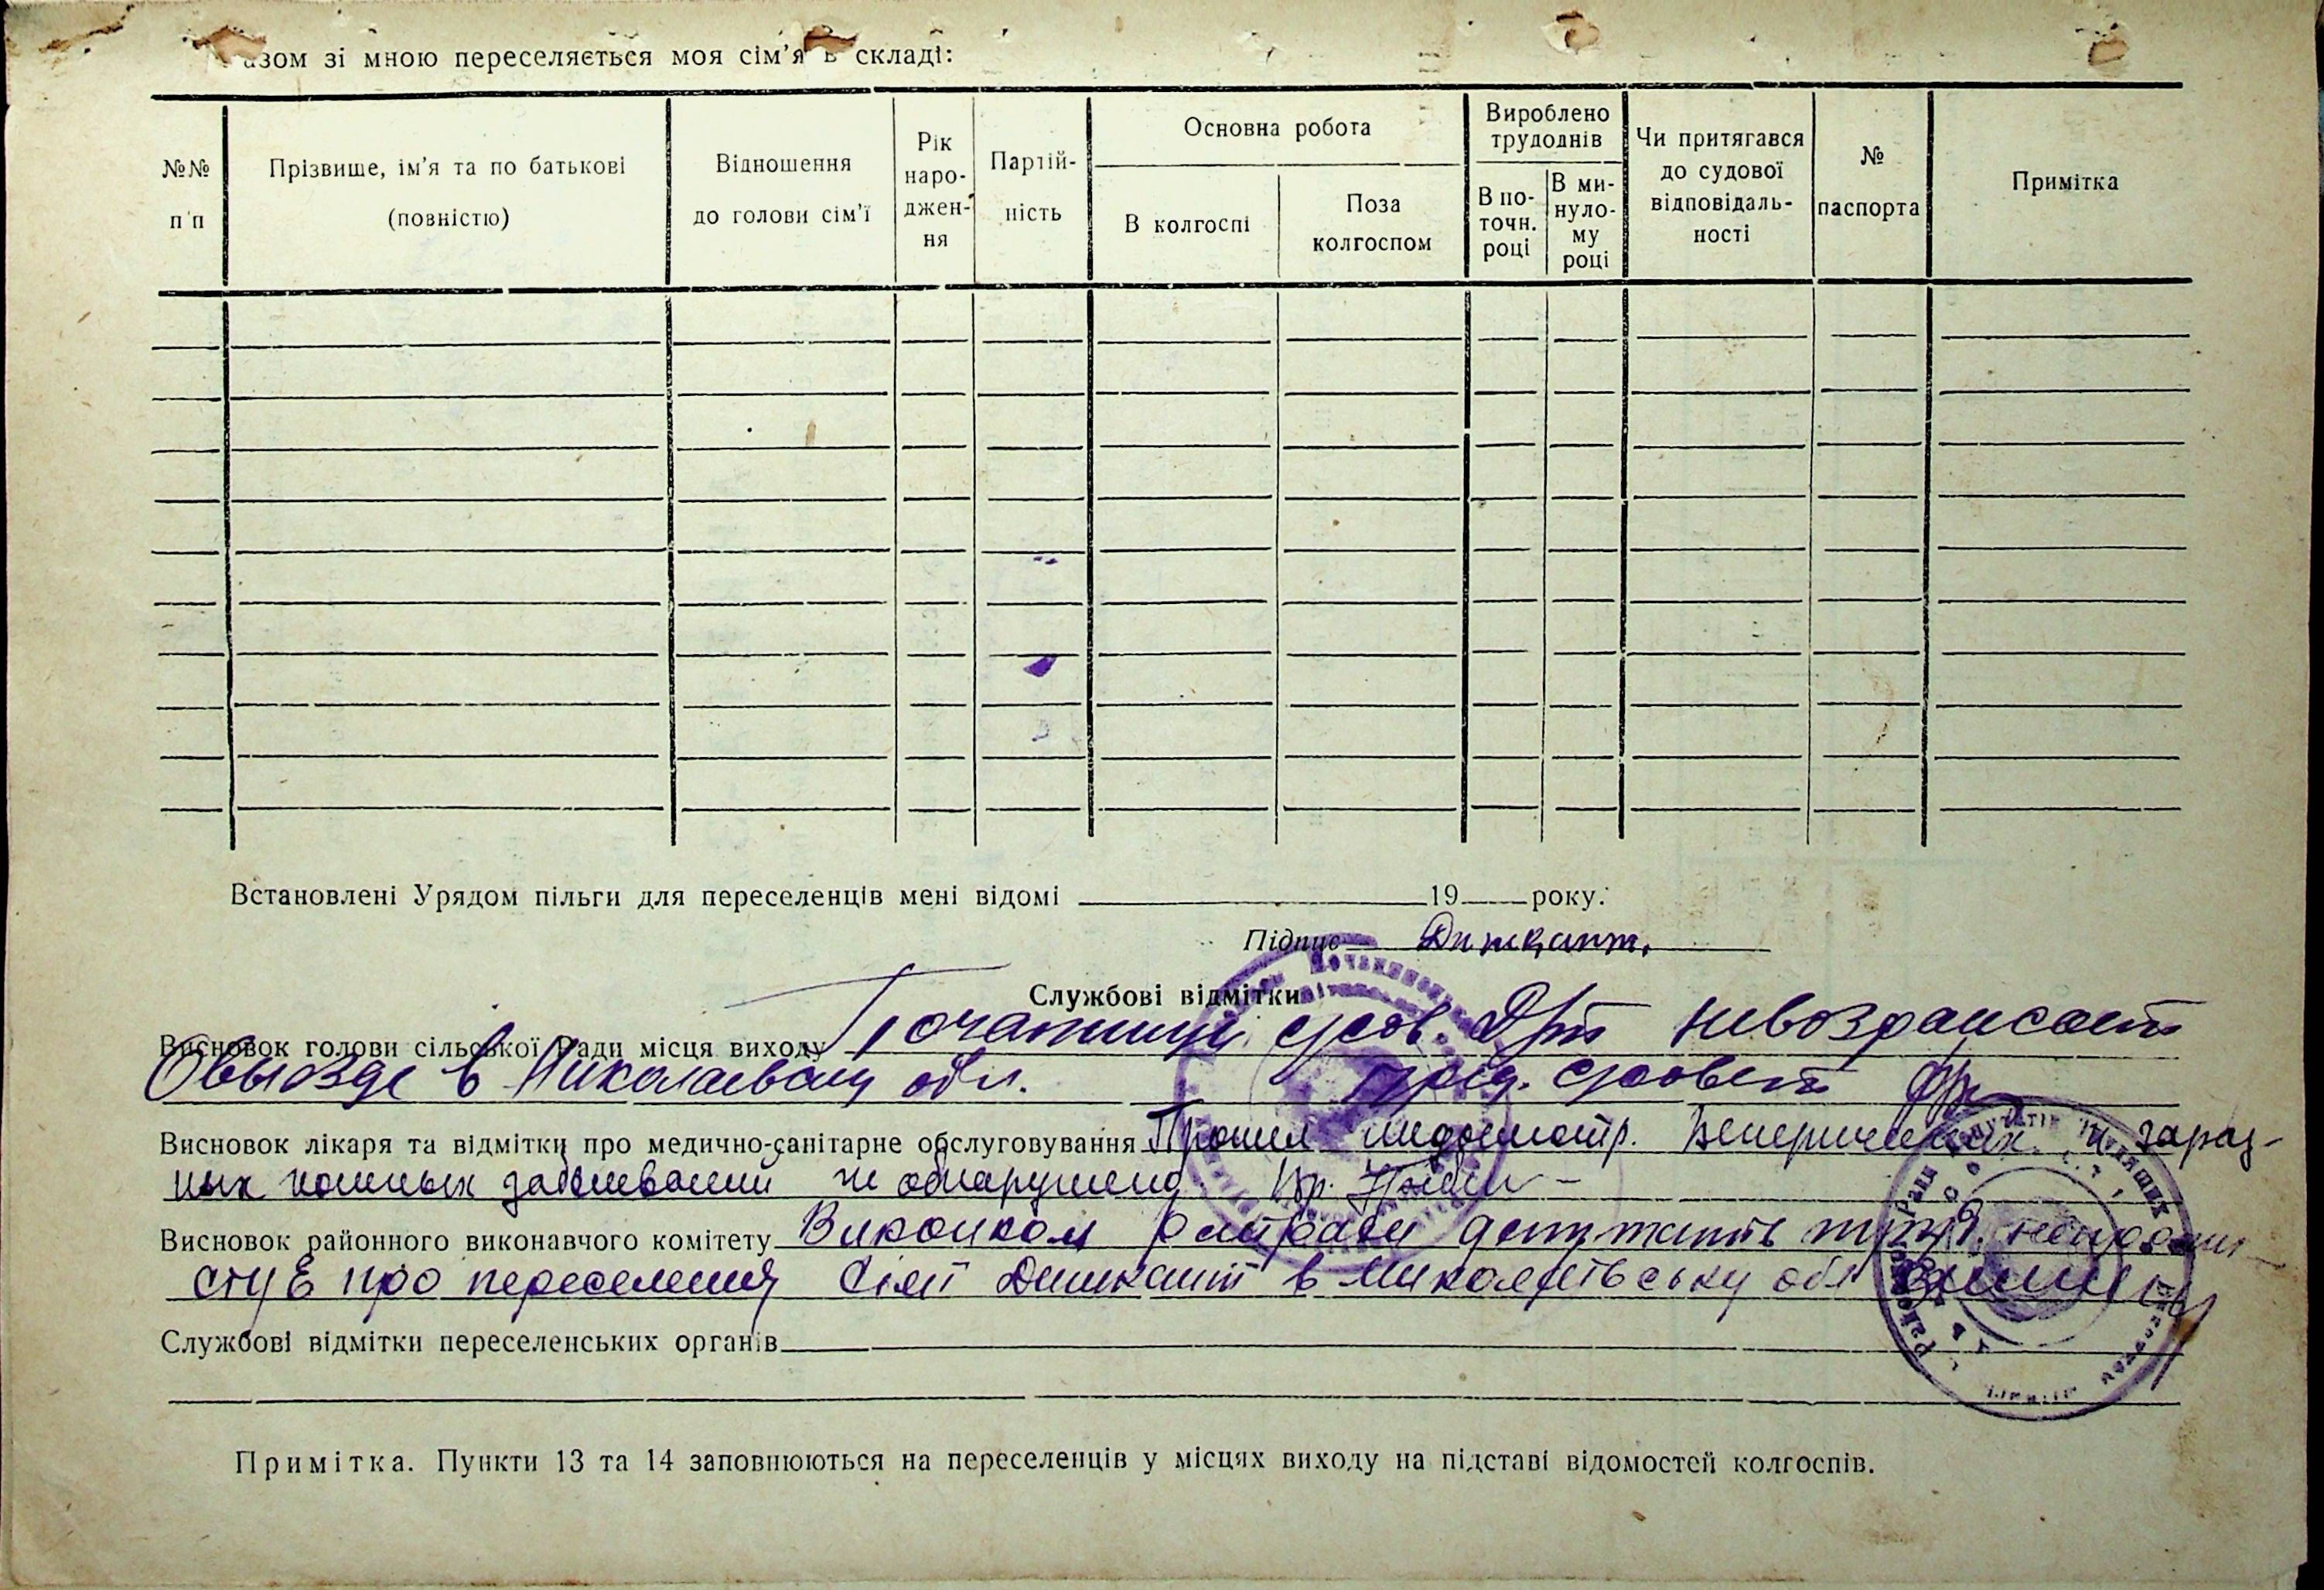 азом зі мною переселяється моя сім'я в складі:
№№ п/п
Прізвище, ім'я та по батькові (повністю)
Відношення до голови сім'ї
Рік наро-джен-ня
Партій-ність
Основна робота
В колгоспі
Поза колгоспом
Вироблено трудоднів
В по-точн. році
В ми-нуло-му році
Чи притягався до судової відповідаль-ності
№ паспорта
Примітка
Встановлені Урядом пільги для переселенців мені відомі 19 року.
Підпис
Службові відмітки
Висновок голови сільської Ради місця виходу невозражает
О вызде в Николаевскую обл. пред. с/совета
Висновок лікаря та відмітки про медично-санітарне обслуговування Прошел медосмотр. Венерических и зараз-
ных кожных заболеваний не обнаружено Вр.
Висновок районного виконавчого комітету Виконком райради депутатів труд. непротеи
стує про переселення сімї в Миколаївську обл
Службові відмітки переселенських органів
Примітка. Пункти 13 та 14 заповнюються на переселенців у місцях виходу на підставі відомостей колгоспів.